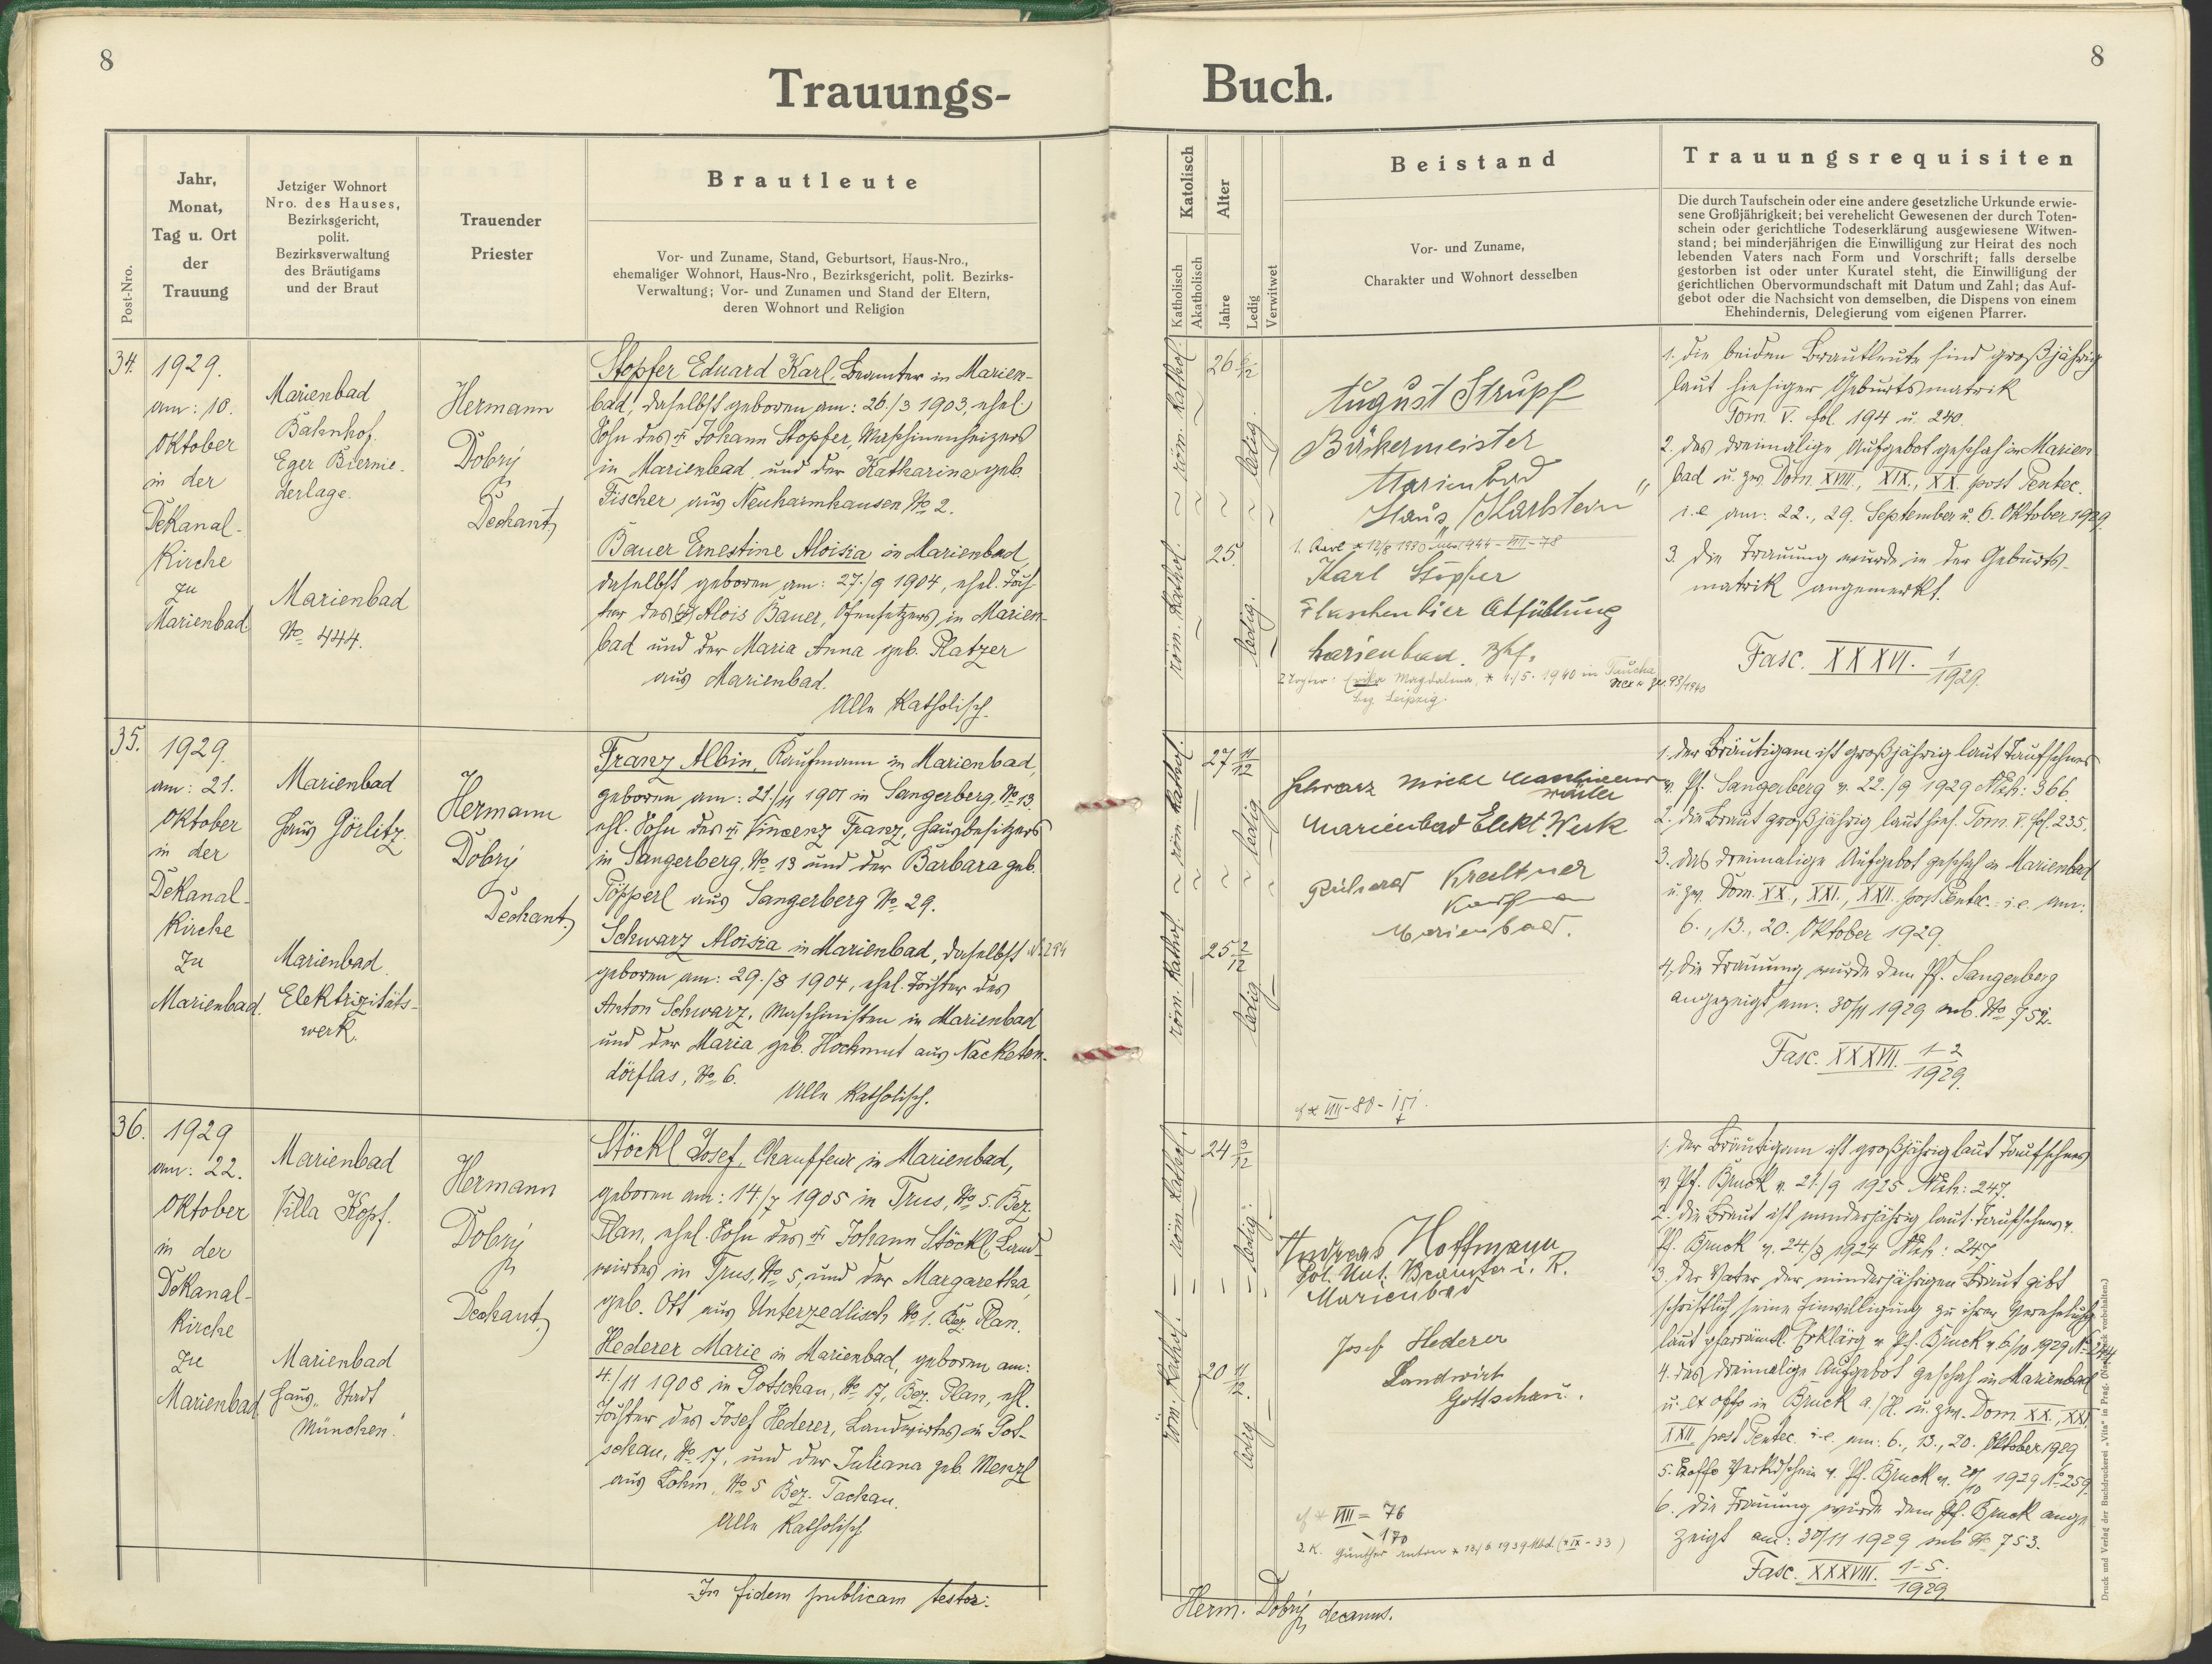 8
Trauungs-
Post-Nro.
Jahr,
Monat,
Tag u. Ort
der
Trauung
Jetziger Wohnort
Nro. des Hauses,
Bezirksgericht,
polit.
Bezirksverwaltung
des Bräutigams
und der Braut
Trauender
Priester
Brautleute
Vor- und Zuname, Stand, Geburtsort, Haus-Nro.,
ehemaliger Wohnort, Haus-Nro., Bezirksgericht, polit. Bezirks-
Verwaltung; Vor- und Zunamen und Stand der Eltern,
deren Wohnort und Religion
34.
1929.
am: 10.
Oktober
in der
Dekanal-
Kirche
zu
Marienbad
Marienbad
Bahnhof.
Eger Biernie-
derlage.
Marienbad
No 444.
Hermann
Dobrý
Dechant
Stopfer Eduard Karl, Beamter in Marien-
bad, daselbst geboren am: 26./3 1903, ehel.
Sohn des † Johann Stopfer, Maschinenheizers
in Marienbad und der Katharina geb.
Fischer aus Neuhaimhausen No 2.
Bauer Ernestine Aloisia in Marienbad,
daselbst geboren am: 27./9 1904, ehel. Toch-
ter des † Alois Bauer, Ofensetzers, in Marien-
bad und der Maria Anna geb. Platzer
aus Marienbad.
Alle Katholisch.
35.
1929.
am: 21.
Oktober
in der
Dekanal-
Kirche
zu
Marienbad.
Marienbad
Haus Görlitz.
Marienbad
Elektrizitäts-
werk.
Hermann
Dobrý
Dechant.
Franz Albin, Kaufmann in Marienbad,
geboren am: 21./11 1901 in Sangerberg, No 13.
ehl. Sohn des † Vinzenz Franz, Hausbesitzers
in Sangerberg, No 13 und der Barbara geb.
Töpperl aus Sangerberg No 29.
Schwarz Aloisia in Marienbad, daselbst N. 294
geboren am: 29./8 1904, ehel. Tochter des
Anton Schwarz, Maschinisten in Marienbad
und der Maria geb. Hochmut aus Nacketen-
dörflas, No 6.
Alle Katholisch.
36.
1929
am: 22.
Oktober
in der
Dekanal-
Kirche
zu
Marienbad
Marienbad
Villa Kopf.
Marienbad
Haus „Stadt
München".
Hermann
Dobrý
Dechant.
Stöckl Josef, Chauffeur in Marienbad,
geboren am: 14./7 1905 in Trus, No 5. Bez.
Plan, ehel. Sohn des † Johann Stöckl, Land-
wirtes in Trus, No 5, und der Margaretha,
geb. Ott aus Unterzedlisch No 1. Bez. Plan.
Hederer Marie in Marienbad, geboren am:
4./11 1908 in Gotschau, No 17, Bez. Plan, ehl.
Tochter des Josef Hederer, Landwirtes in Got-
schau, No 17, und der Juliana geb. Menzl
aus Lohm, No 5 Bez. Tachau.
Alle Katholisch
In fidem publicam testor:
8
Buch.
Katolisch
Katholisch
Akatholisch
Alter
Jahre
Ledig
Verwitwet
Beistand
Vor- und Zuname,
Charakter und Wohnort desselben
Trauungsrequisiten
Die durch Taufschein oder eine andere gesetzliche Urkunde erwie-
sene Großjährigkeit; bei verehelicht Gewesenen der durch Toten-
schein oder gerichtliche Todeserklärung ausgewiesene Witwen-
stand; bei minderjährigen die Einwilligung zur Heirat des noch
lebenden Vaters nach Form und Vorschrift; falls derselbe
gestorben ist oder unter Kuratel steht, die Einwilligung der
gerichtlichen Obervormundschaft mit Datum und Zahl; das Auf-
gebot oder die Nachsicht von demselben, die Dispens von einem
Ehehindernis, Delegierung vom eigenen Pfarrer.
röm. Kathol.
26 6/12
ledig.
röm. Kathol.
25.
ledig.
August Strupf
Bäckermeister
Marienbad
Haus „Karlstein"
Karl Stopfer
Flaschenbier Abfüllung
Marienbad. Bhf.
Magdalena, * 1./5. 1940 in Taucha
Leipzig.
1. Die beiden Brautleute sind großjährig
laut hiesiger Geburtsmatrik
Tom. V. fol. 194 u. 240.
2. das dreimalige Aufgebot geschah in Marien-
bad u. zw. Dom. XVIII., XIX., XX. post Pentec.
i.e am: 22., 29. September u. 6. Oktober 1929.
3. Die Trauung wurde in der Geburts-
matrik angemerkt.
Fasc. XXXVI. 1/1929.
röm. Kathol.
27 11/12
ledig
röm. Kathol.
25 2/12
ledig
Marienbad Elekt. Werk
Marienbad.
1. der Bräutigam ist großjährig laut Taufschein
v. Pf. Sangerberg v. 22./9 1929 Nch: 366.
2. die Braut großjährig laut hies. Tom. V. fol. 235.
3. das dreimalige Aufgebot geschah in Marienbad
u. zw. Dom. XX., XXI., XXII. post Pentec. i.e. am:
6., 13., 20. Oktober 1929.
4. die Trauung wurde dem Pf. Sangerberg
angezeigt am: 30/11 1929 sub. No 752.
Fasc. XXXVII. 1-2/1929.
röm. Kathol.
24 3/12
ledig.
röm. Kathol.
20 11/12.
ledig
Andreas Hoffmann
Beamter i. R.
Marienbad
Josef Hederer
Landwirt
Gottschau.
VIII = 76
Günther Anton * 13/6 1939
1. der Bräutigam ist großjährig laut Taufschein
v. Pf. Bruck v. 21./9 1925 Nch: 247.
2. die Braut ist minderjährig laut Taufschein v.
Pf. Bruck v. 24./9 1924 Nch: 247
3. der Vater der minderjährigen Braut gibt
schriftlich seine Einwilligung zu ihrer Verehelichg
laut pfarrämtl. Erklärg v. Pf. Bruck v. 6/10 1929 No 244
4. das dreimalige Aufgebot geschah in Marienbad
u. ex offo in Bruck a./H. u. zw. Dom. XX., XXI,
XXII post Pentec. i.e. am: 6., 13., 20. Oktober 1929
5. Exoffo Verkdschein v. Pf. Bruck v. 20/10 1929 No 259.
6. die Trauung wurde dem Pf. Bruck ange-
zeigt am: 30/11 1929 sub No 753.
Fasc. XXXVIII. 1-5./1929
Herm. Dobrý, decanus.
Druck und Verlag der Buchdruckerei „Vita" in Prag. (Nachdruck vorbehalten.)